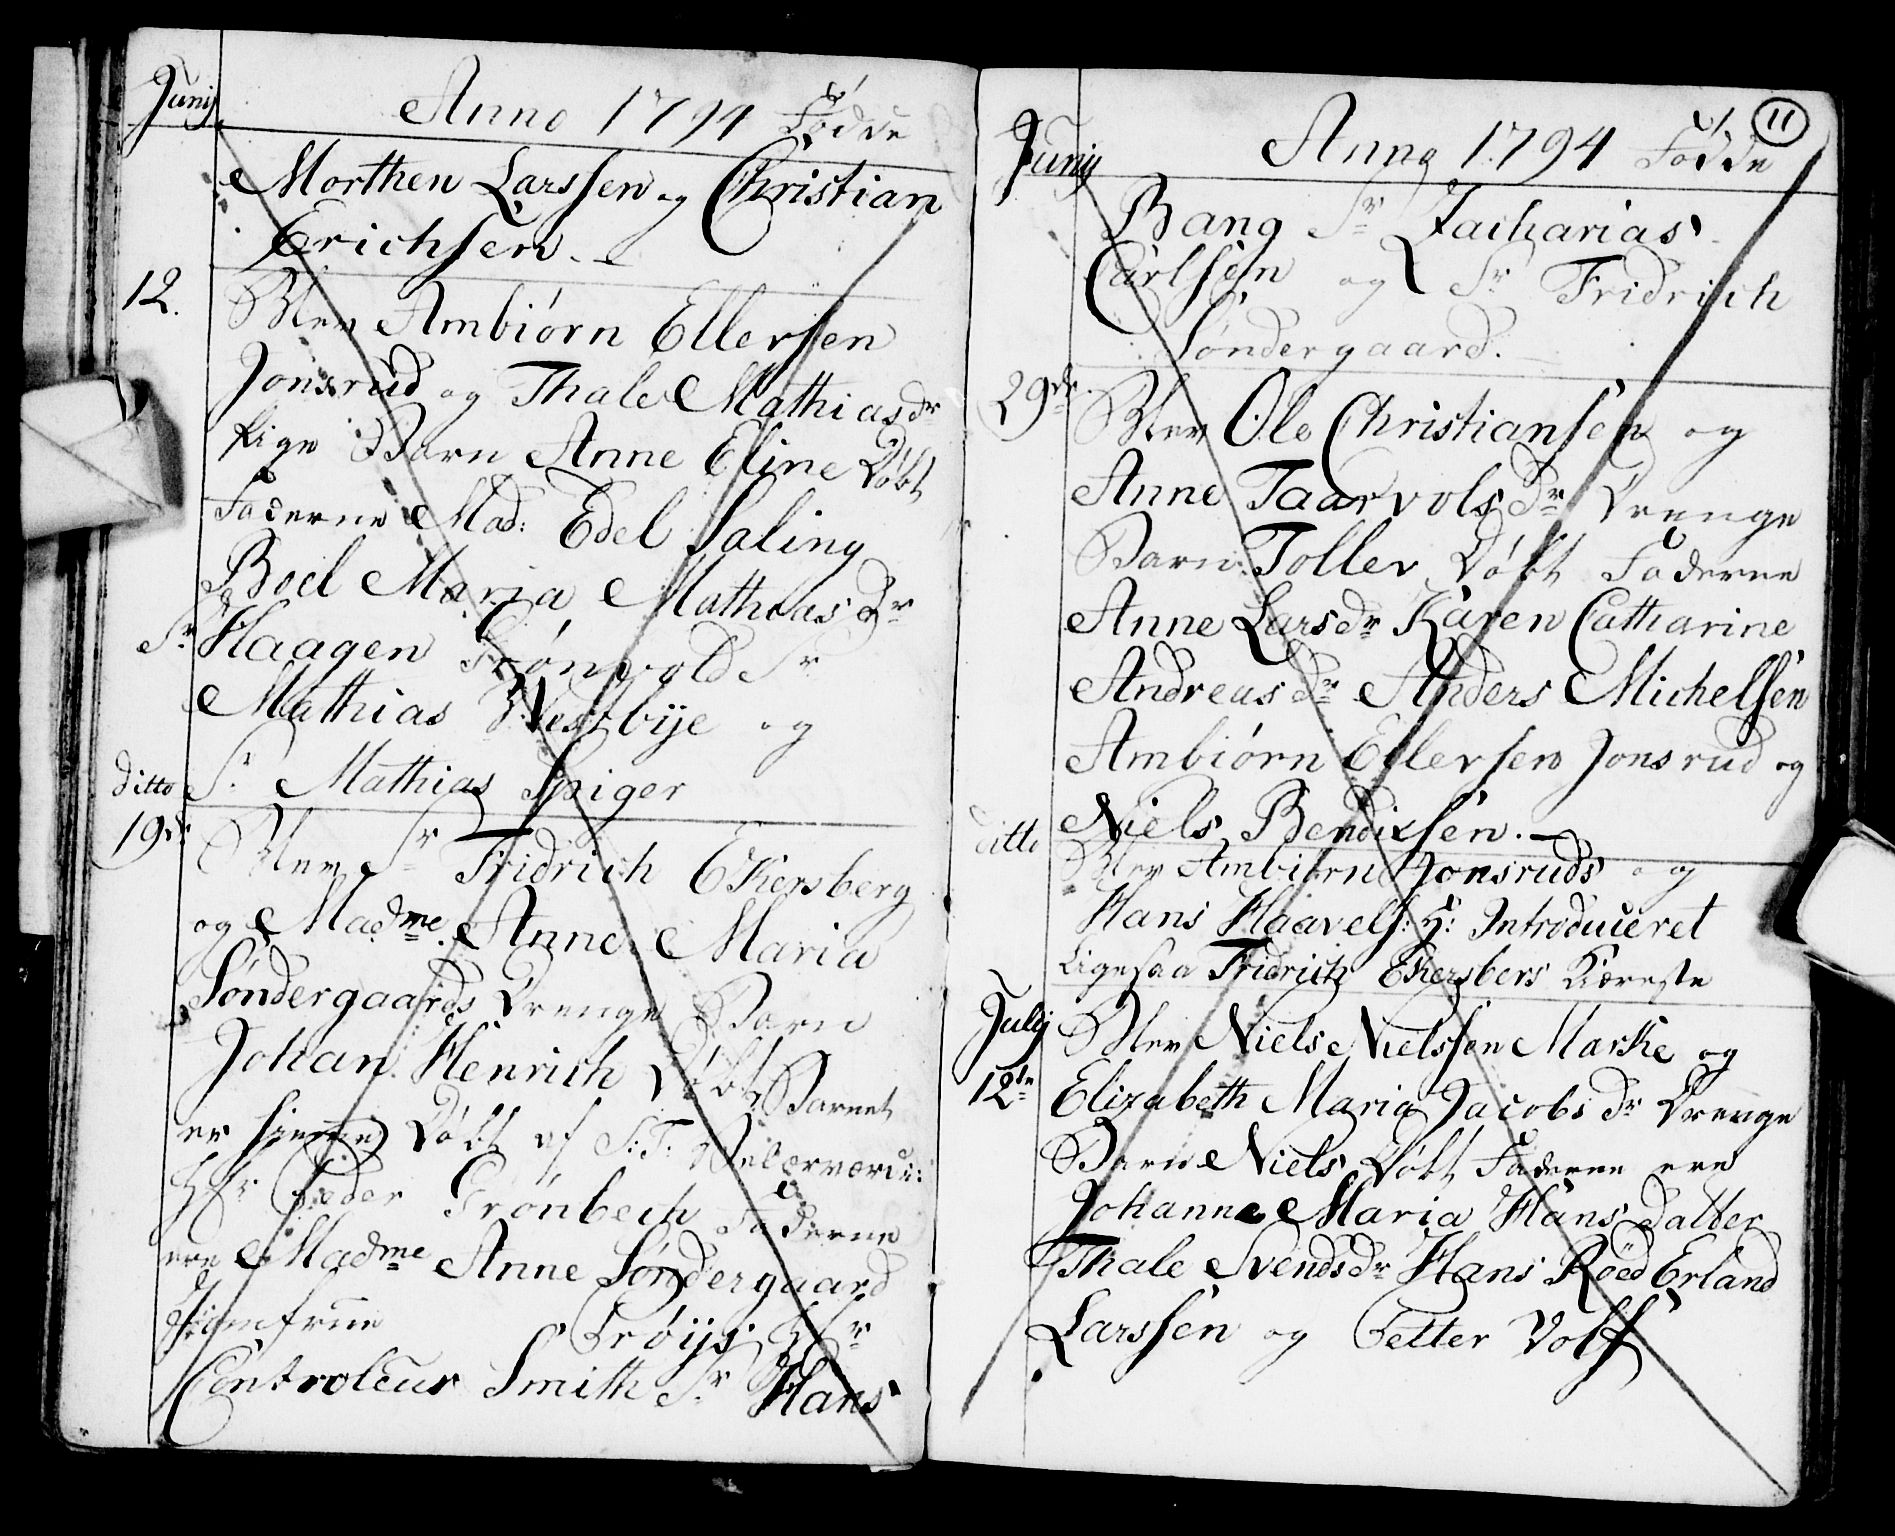 Junij
Anno 1794 Fødde
Morthen Larssen og Christian
Erichsen.
12. Blev Ambiørn Ellersen
Jonsrud og Thale Mathiasdr
Pige Barn Anne Eline Døbt
Faderne Mad: Edel Saling
Boel Maria Mathias Dr
Sr Haagen Grønvold Sr
Mathias Westbÿe og
Sr Mathias Spiger
ditto
19de Blev Sr Fridrich Ekersberg
og Madme Anne Maria
Søndergaards Drenge Barn
Johan Henrich Døbt Barnet
er hieme Døbt af S: T: Velærværd:
Hr Peder Grønbech Faderne
ere Madme Anne Søndergaard
Jiomfrue Frøÿs Hr
Controleur Smith Sr Hans
11
Junij
Anno 1794 Fødde
Bang Sr Zacharias
Carlsen og Sr Fridrich
Søndergaard.
29de Blev Ole Christiansen og
Anne Taarvols Dr Drenge
Barn Tollev Døbt Faderne
Anne Larsdr Karen Catharine
Andreas Dr Anders Michelsen
Ambiørn Ellersen Jonsrud og
Niels Bendixsen.
ditto Blev Ambiørn Jonsruds og
Hans Haavels: H: Introduceret
Ligesaa Fridrich Ekersbers Kiæreste
Julij Blev Niels Nielssen Marke og
12te Elizabeth Maria Jacobs Dr Drenge
Barn Niels Døbt Faderne ere
Johanne Maria Hans Datter
Thale Svendsdr Hans Røed Erland
Larssen og Petter Volf